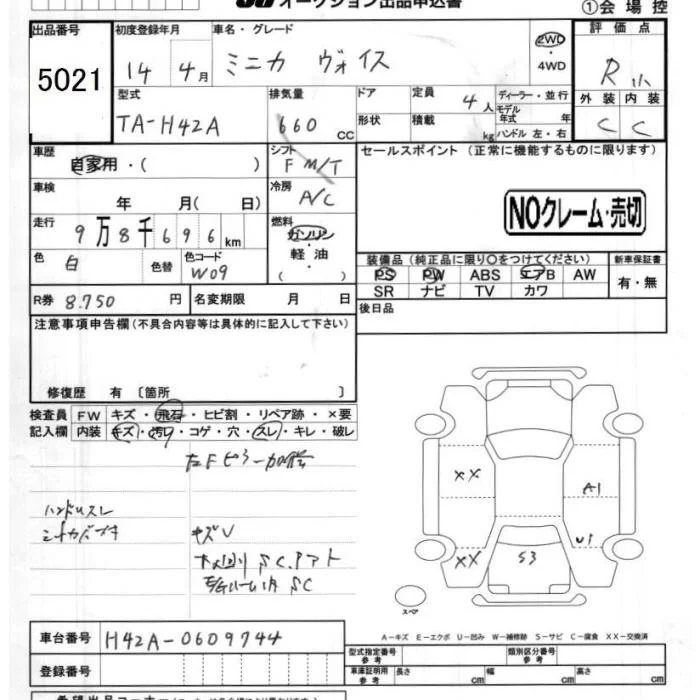 オークション出品申込書
①会場控
出品番号 初度登録年月 車名・グレード 評価点
5021 14年 4月 ミニカ ヴォイス 2WD・4WD R
外装 内装
C C
型式 排気量 ドア 定員 4人 ディーラー・並行
TA-H42A 660cc 形状 積載 kg モデル年式 年
ハンドル 左・右
車歴 自家用・( ) シフト F M/T セールスポイント (正常に機能するものに限ります)
車検 年 月( 日) 冷房 A/C
NOクレーム・売切
走行 9万8千696km 燃料 ガソリン・軽油・( )
色 白 色替 色コード W09
装備品(純正品に限り○をつけてください) 新車保証書
PS PW ABS エアB AW 有・無
SR ナビ TV カワ
R券 8.750円 名変期限 月 日
後日品
注意事項申告欄(不具合内容等は具体的に記入して下さい)
修復歴 有〔箇所 〕
検査員 FW キズ・飛石・ヒビ割・リペア跡・×要
記入欄 内装 キズ・汚レ・コゲ・穴・スレ・キレ・破レ
左Fピラー加修
ハンドルスレ
キズU
SC.アト
SC
XX
A1
U1
XX
S3
スペア
A-キズ E-エクボ U-凹み W-補修跡 S-サビ C-腐食 XX-交換済
車台番号 H42A-0609744
型式指定番号 参考 類別区分番号 参考
登録番号
車庫証明用 参考 長さ cm 幅 cm 高さ cm